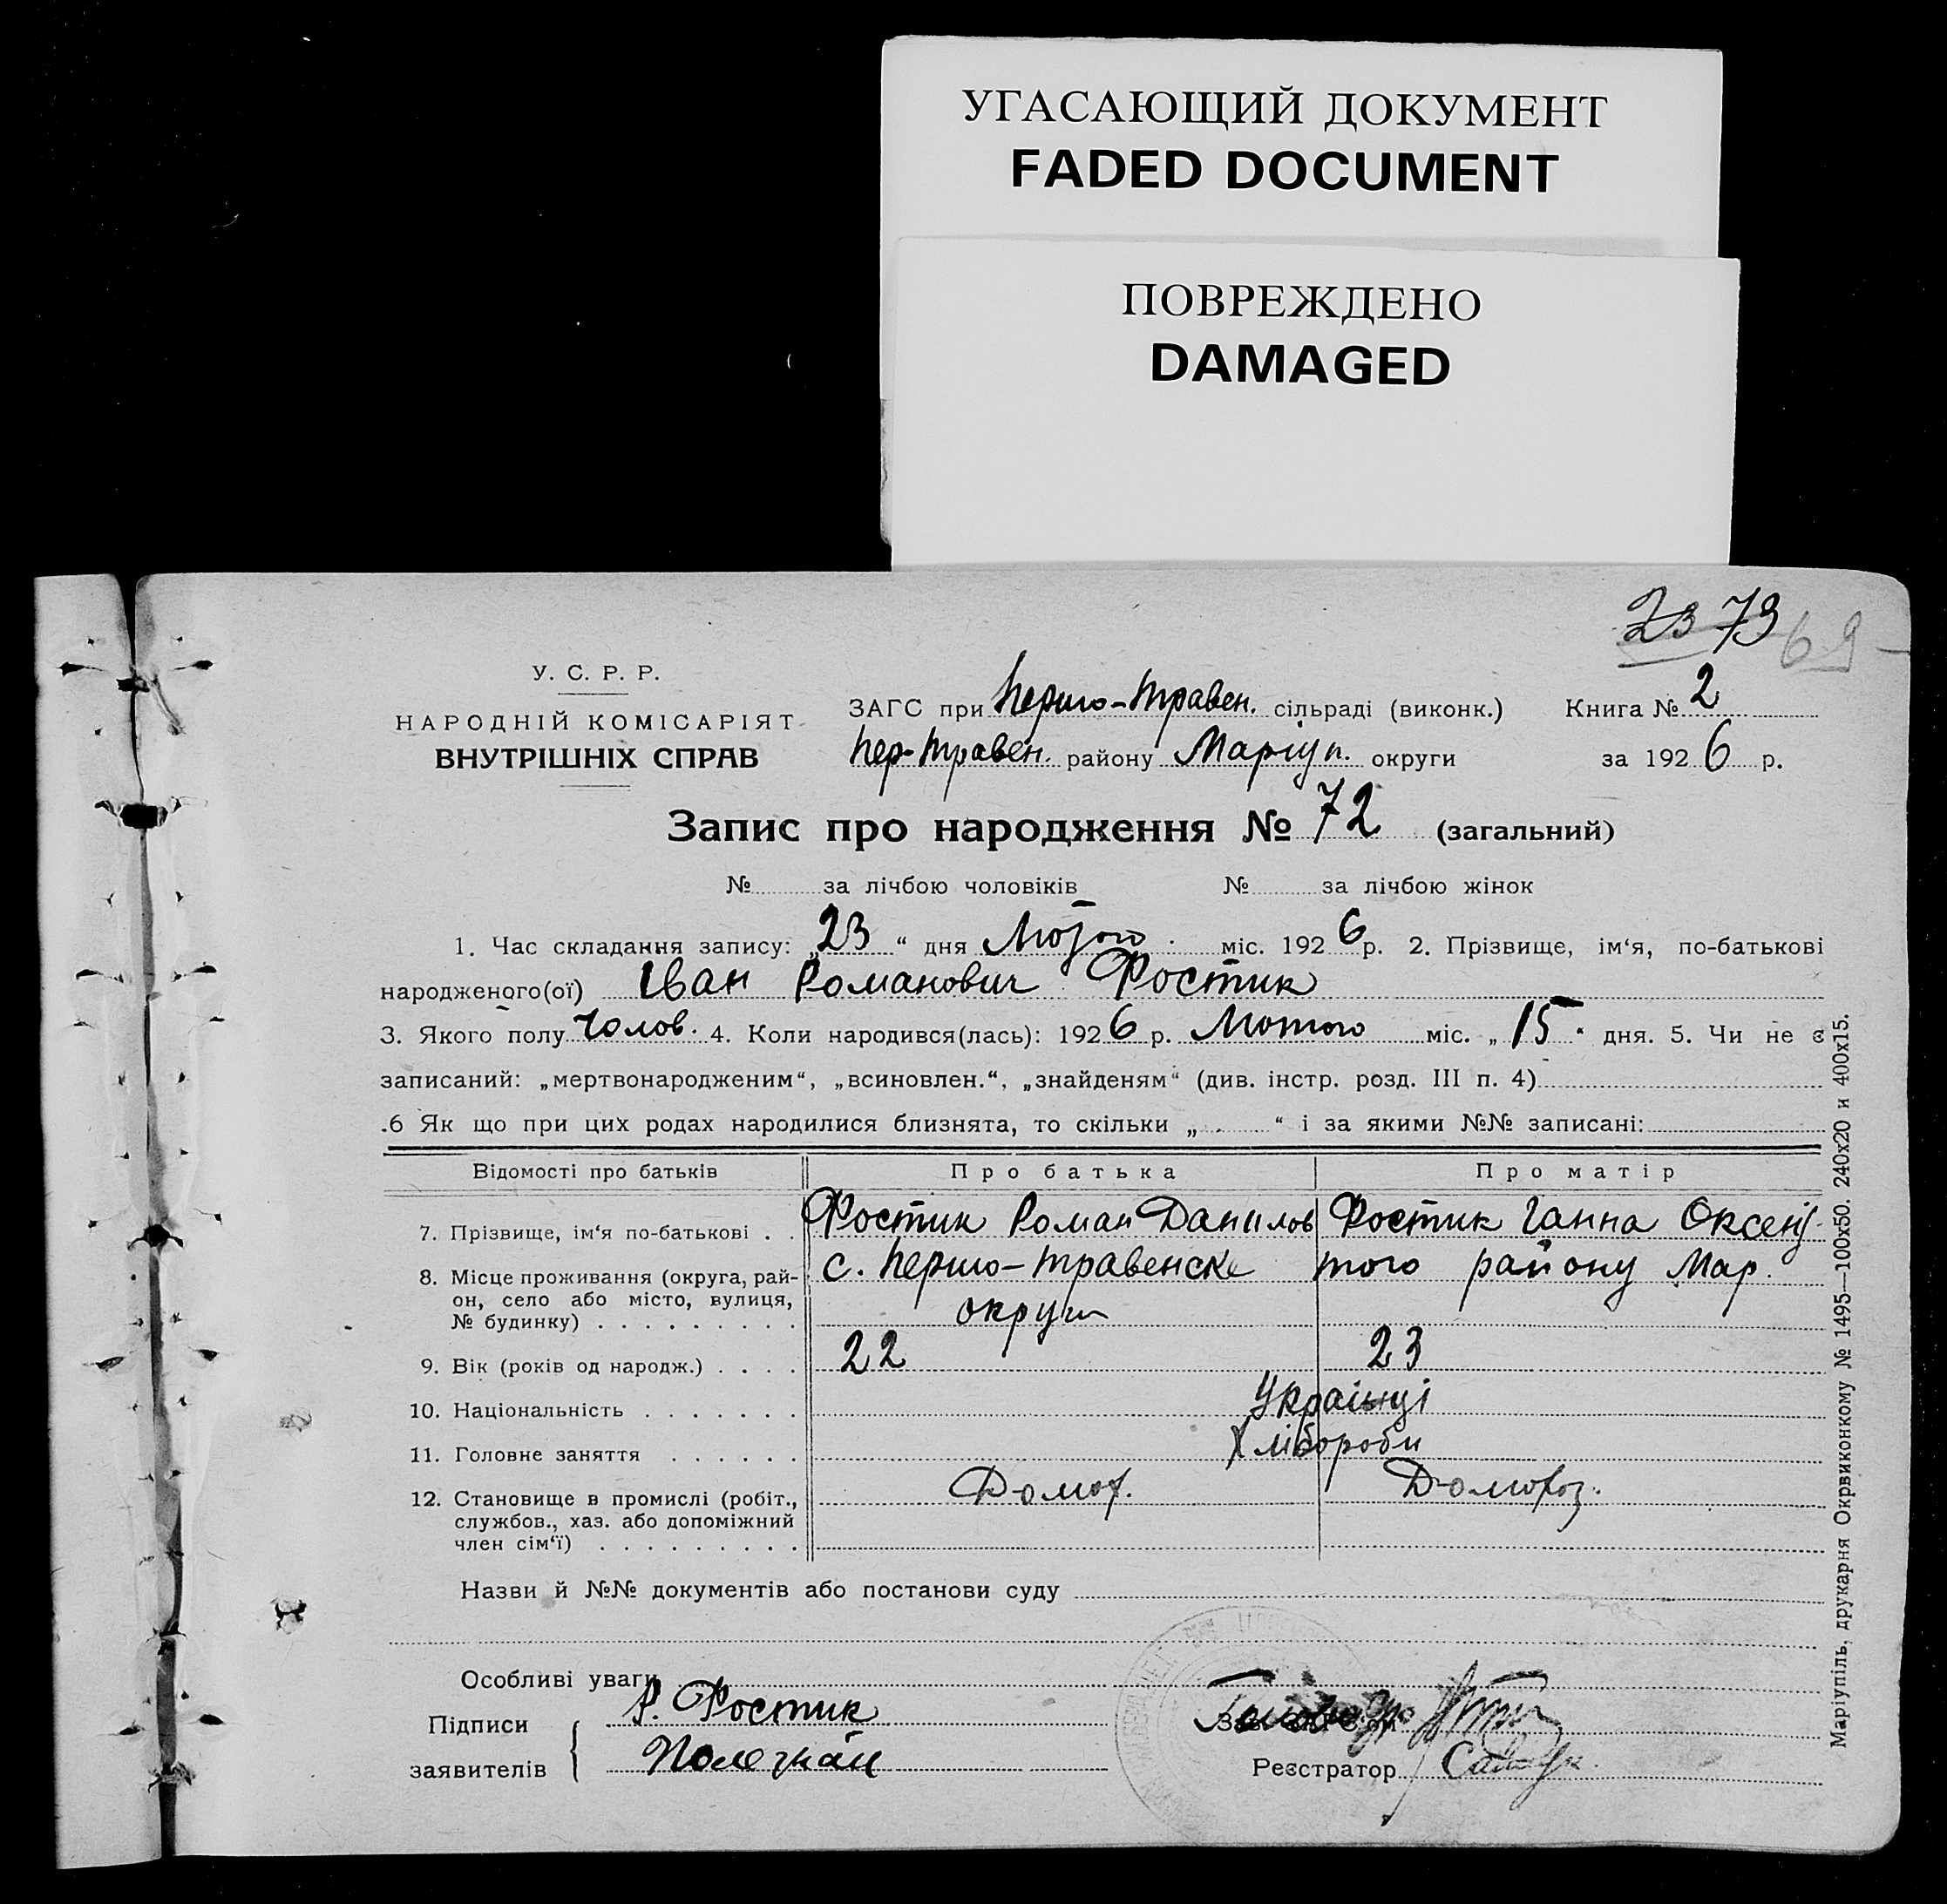 УГАСАЮЩИЙ ДОКУМЕНТ
FADED DOCUMENT
ПОВРЕЖДЕНО
DAMAGED
23 73 69
У. С. Р. Р.
НАРОДНІЙ КОМІСАРІЯТ
ВНУТРІШНІХ СПРАВ
ЗАГС при Першо-Травен. сільраді (виконк.) Книга № 2
Пер-Травен. району Маріуп. округи за 1926 р.
Запис про народження № 72 (загальний)
№ за лічбою чоловіків № за лічбою жінок
1. Час складання запису: „23“ дня Лютого міс. 1926 р. 2. Прізвище, ім‘я, по-батькові
народженого(ої) Іван Романович Ростик
3. Якого полу Чолов. 4. Коли народився(лась): 1926 р. Лютого міс. „15“ дня. 5. Чи не є
записаний: „мертвонародженим“, „всиновлен.“, „знайденям“ (див. інстр. розд. III п. 4)
.6 Як що при цих родах народилися близнята, то скільки „ “ і за якими №№ записані:
Відомості про батьків Про батька Про матір
7. Прізвище, ім‘я по-батькові . . Ростик Роман Данилов Ростик Ганна Оксент
8. Місце проживання (округа, рай- с. Першо-Травенске того району Мар.
он, село або місто, вулиця, округи
№ будинку) . . . . . . . . .
9. Вік (років од народж.) . . . . 22 23
10. Національність . . . . . . . Українці
11. Головне заняття . . . . . . Хлібороби
12. Становище в промислі (робіт., Домог. Домогоз.
службов., хаз. або допоміжний
член сім‘ї) . . . . . . . . .
Назви й №№ документів або постанови суду
Особливі уваги
Підписи Р. Ростик
заявителів
Реєстратор
Маріупіль, друкарня Окрвиконкому № 1495—100х50. 240х20 и 400х15.